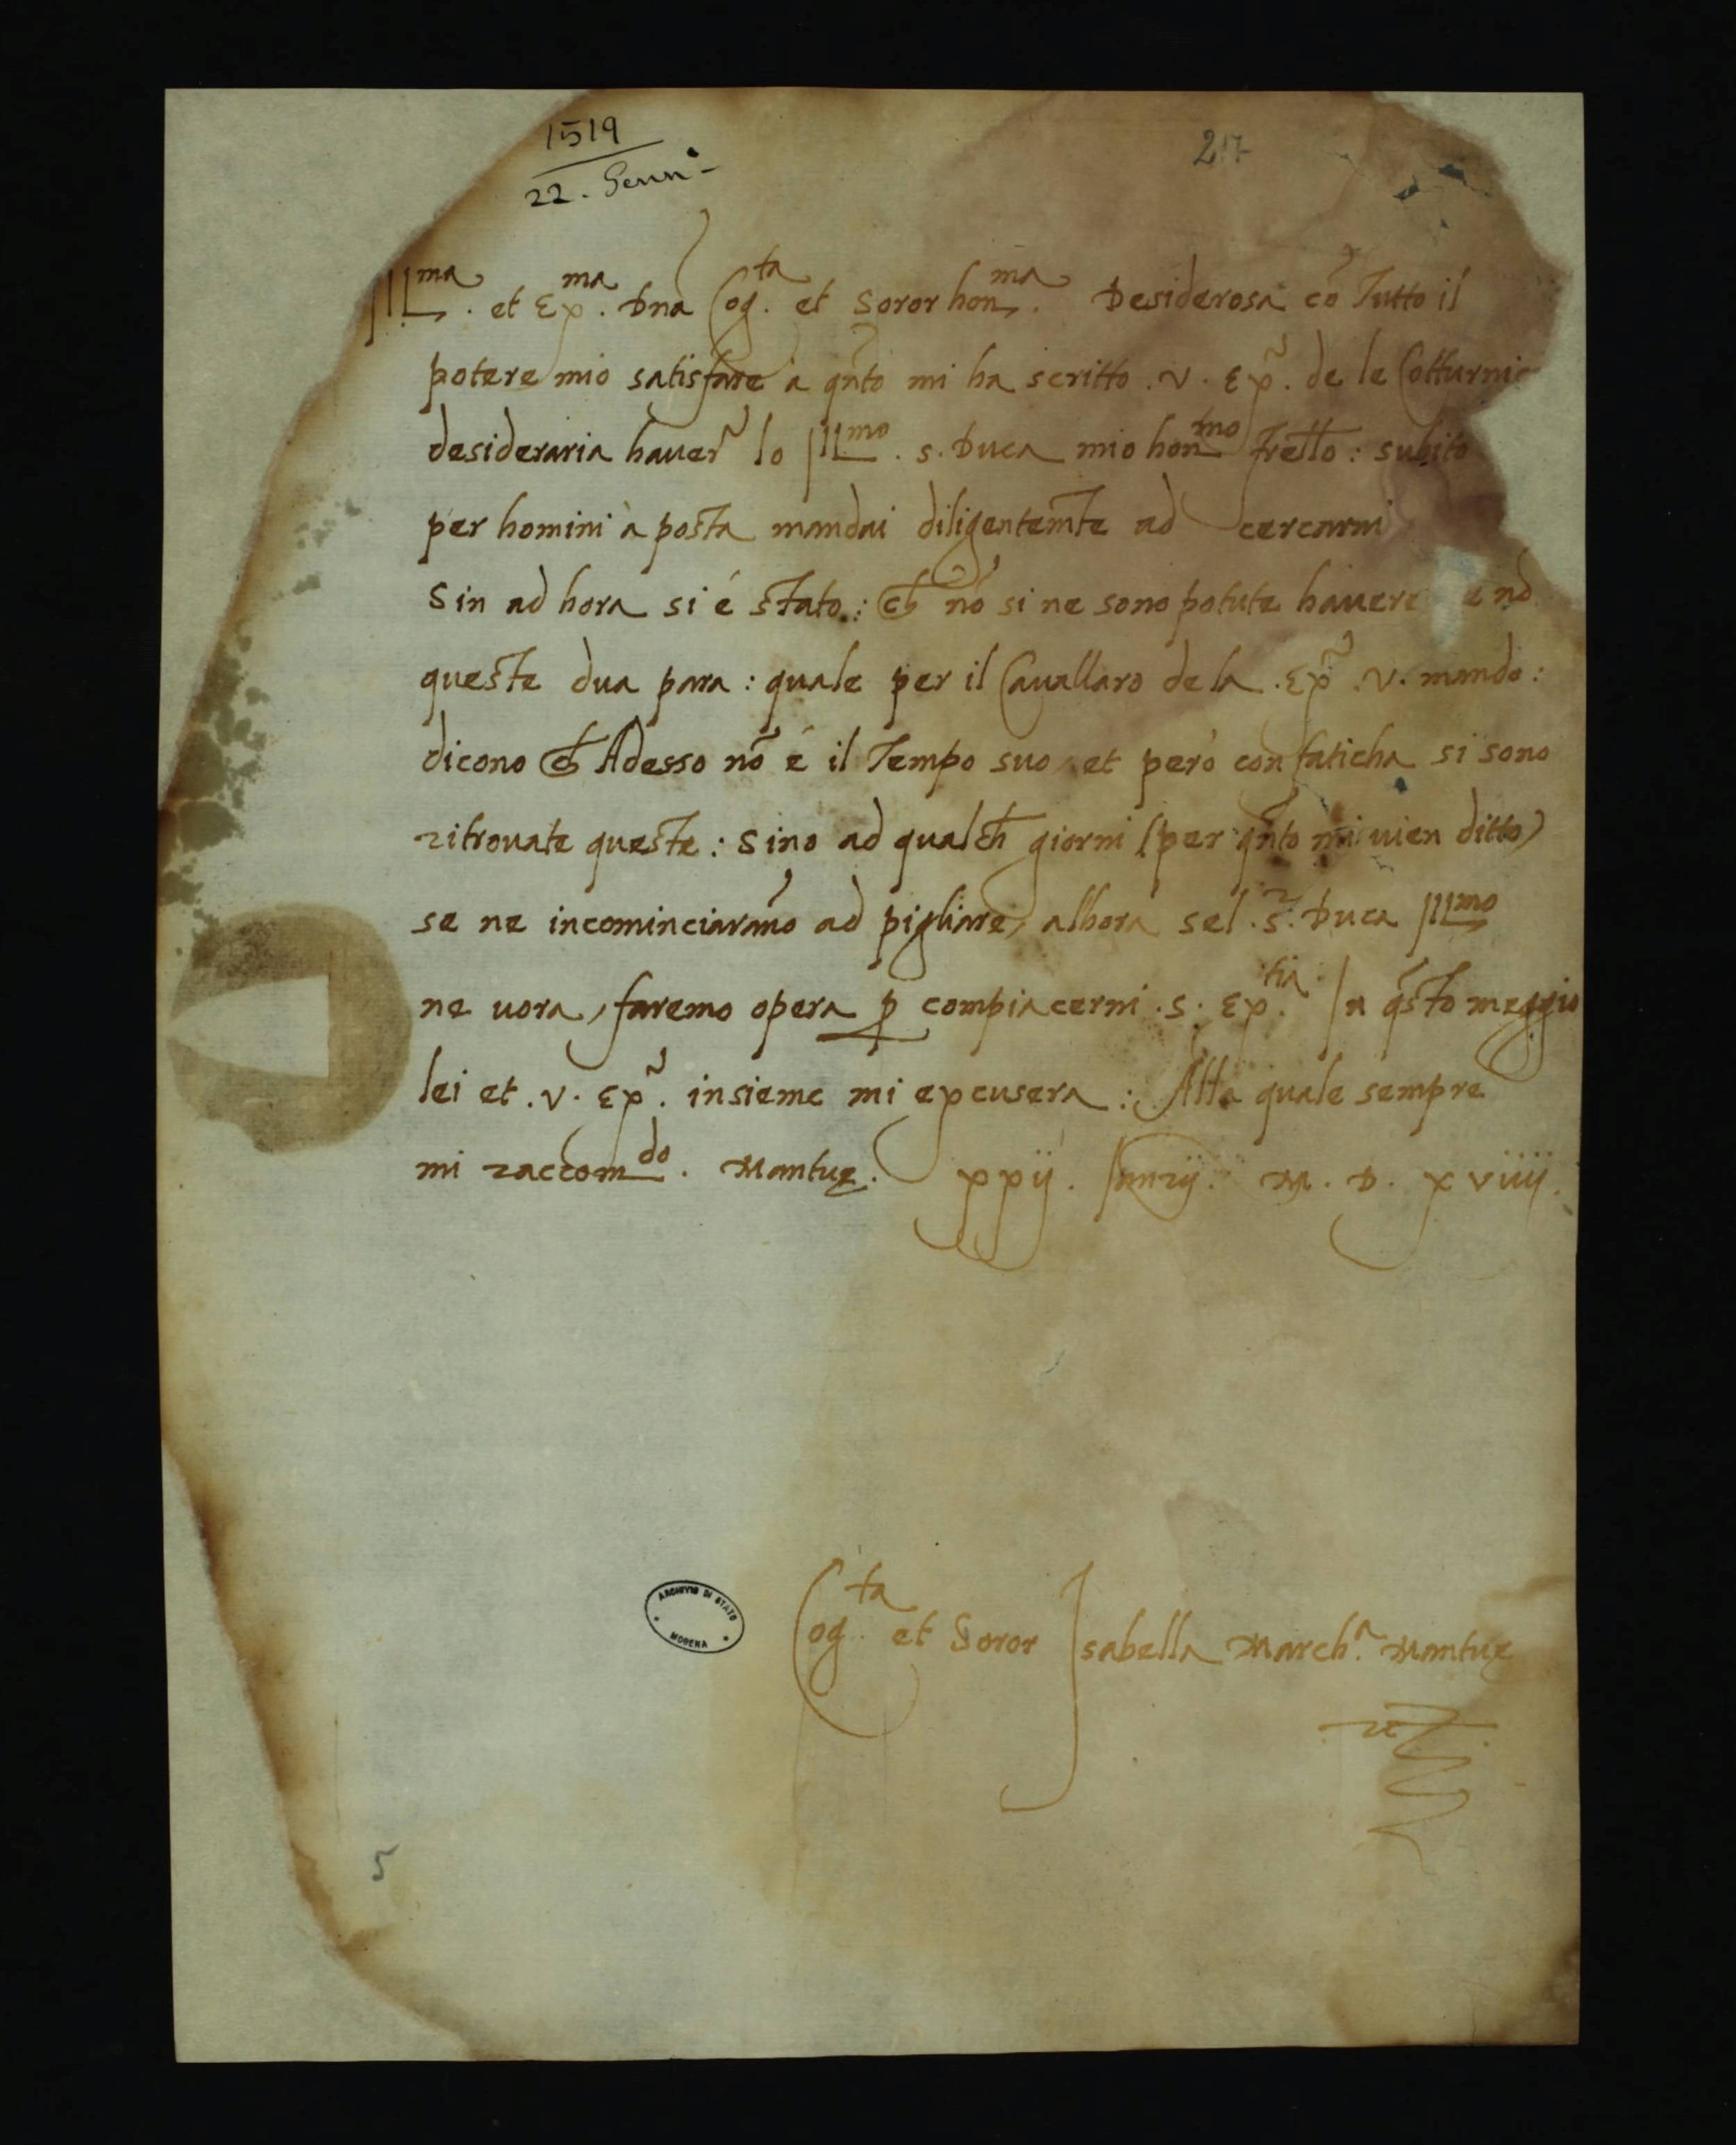 1519
22. Genn.
217
Ill.ma et Ex.ma Dna Cog.ta et Soror hon.ma Desiderosa cō Tutto il
potere mio satisfare à qñto mi ha scritto .V. Ex̃. de le Cotturnic
desideraria hauer̃ lo Ill.mo .S. Duca mio hon.mo Frello: subito
per homini à posta mandai diligentemte ad cercarni
Sin ad hora si é stato: ch̃ nō si ne sono potute hauere e nō
queste dua para: quale per il Cauallaro de la .Ex̃ .V. mando:
dicono ch̃ Adesso nō é il Tempo suo, et peró con faticha si sono
ritrouate queste: Sino ad qualch̃ giorni (per qñto mi uien ditto)
se ne incominciarañō ad pigliare, alhora sel .S.r Duca Ill.mo
ne uora, faremo opera p̱ compiacerni .S. Ex.tia In q̃sto meggio
lei et .V. Ex̃. insieme mi excusera: Alla quale sempre
mi raccom.do. Mantuę. xxij. Ianrij. M. D. xviiij.
Cog.ta et Soror Isabella March.a Mantuę
ARCHIVIO DI STATO
MODENA
5